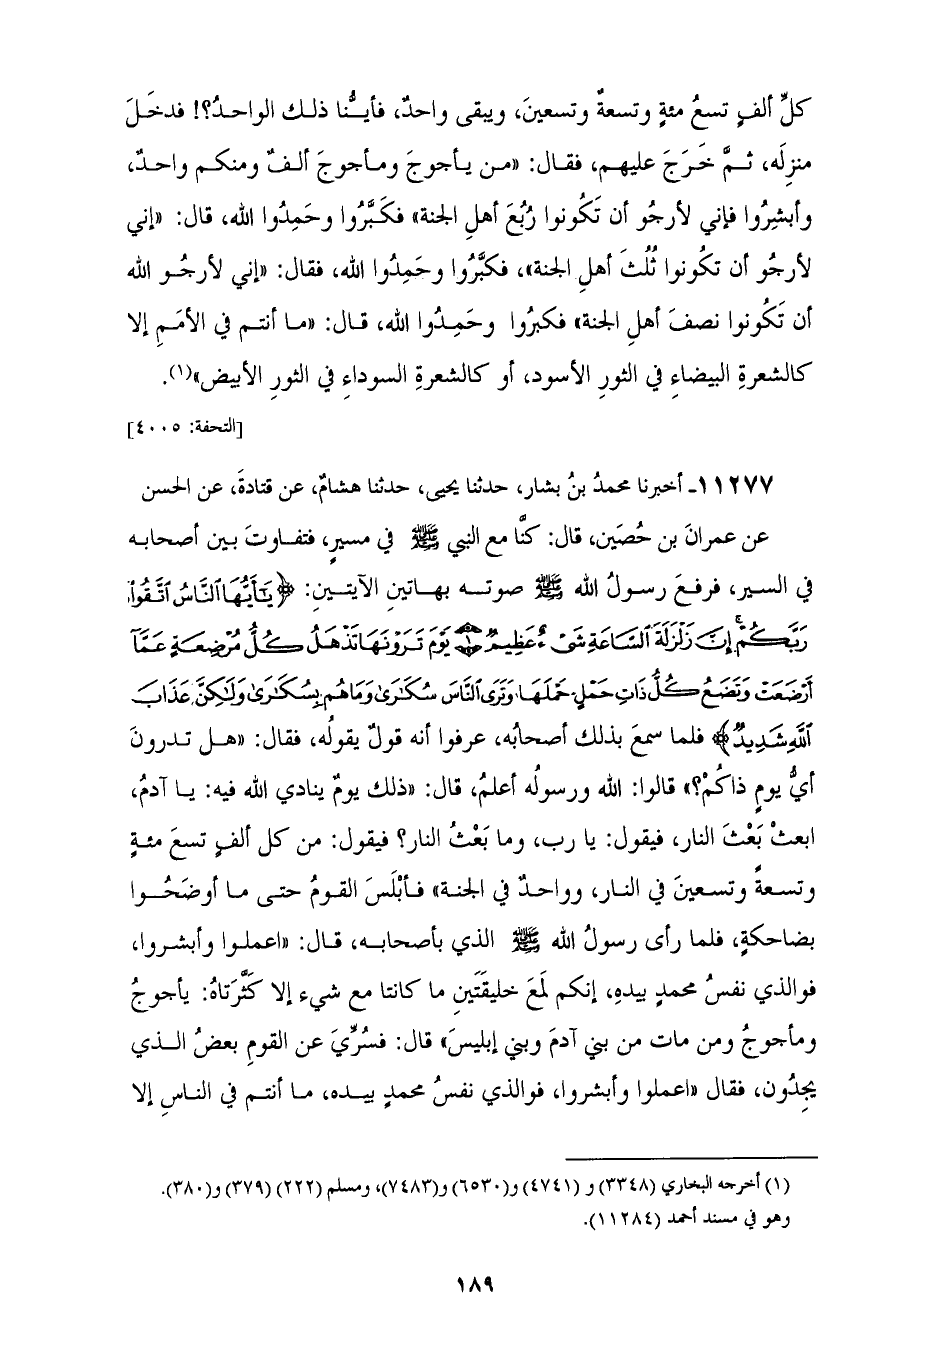 كلِّ ألفٍ تسعُ مئةٍ وتسعةٌ وتسعينَ، ويبقى واحدٌ، فأيـُّنا ذلـك الواحـدُ؟! فدخَـلَ
منزِلَه، ثـمَّ خَـرَجَ عليهـم، فقـال: «مـن يـأجوجَ ومـأجوجَ ألـفٌ ومنكـم واحـدٌ،
وأبشِرُوا فإني لأرجُو أن تَكُونوا رُبُعَ أهلِ الجنة» فكَبَّرُوا وحَمِدُوا الله، قال: «إني
لأرجُو أن تكُونوا ثُلُثَ أهلِ الجنة»، فكبَّرُوا وحَمِدُوا الله، فقال: «إني لأرجُـو الله
أن تَكُونوا نصفَ أهلِ الجنة» فكبرُوا وحَمِـدُوا الله، قـال: «مـا أنتـم في الأمَـمِ إلا
كالشعرةِ البيضاءِ في الثورِ الأسود، أو كالشعرةِ السوداءِ في الثورِ الأبيض»(١).
[التحفة: ٤٠٠٥]
١١٢٧٧ـ أخبرنا محمدُ بنُ بشار، حدثنا يحيى، حدثنا هشامٌ، عن قتادةَ، عن الحسن
عن عمرانَ بن حُصَين، قال: كنَّا مع النبي ﷺ في مسيرٍ، فتفـاوتَ بيـن أصحابـه
في السير، فرفـعَ رسـولُ الله ﷺ صوتـه بهـاتين الآيتـين: ﴿يَـٰٓأَيُّهَا ٱلنَّاسُ ٱتَّقُوا۟
رَبَّكُمْ ۚ إِنَّ زَلْزَلَةَ ٱلسَّاعَةِ شَىْءٌ عَظِيمٌ ۝ يَوْمَ تَرَوْنَهَا تَذْهَلُ كُلُّ مُرْضِعَةٍ عَمَّآ
أَرْضَعَتْ وَتَضَعُ كُلُّ ذَاتِ حَمْلٍ حَمْلَهَا وَتَرَى ٱلنَّاسَ سُكَـٰرَىٰ وَمَا هُم بِسُكَـٰرَىٰ وَلَـٰكِنَّ عَذَابَ
ٱللَّهِ شَدِيدٌ﴾ فلما سمعَ بذلك أصحابُه، عرفوا أنه قولٌ يقولُه، فقال: «هـل تـدرونَ
أيُّ يومٍ ذاكُمْ؟» قالوا: الله ورسولُه أعلمُ، قال: «ذلك يومٌ ينادي الله فيه: يـا آدمُ،
ابعثْ بَعْثَ النار، فيقول: يا رب، وما بَعْثُ النار؟ فيقول: من كل ألفٍ تسعَ مئـةٍ
وتسعةً وتسعينَ في النار، وواحدٌ في الجنة» فـأبْلَسَ القـومُ حتـى مـا أوضَحُـوا
بضاحكةٍ، فلما رأى رسولُ الله ﷺ الذي بأصحابـه، قـال: «اعملـوا وأبشـروا،
فوالذي نفسُ محمدٍ بيدهِ، إنكم لَمَعَ خليقَتَينِ ما كانتا مع شيء إلا كَثَّرَتاهُ: يأجوجُ
ومأجوجُ ومن مات من بني آدمَ وبني إبليسَ» قال: فسُرِّيَ عن القومِ بعضُ الـذي
يجِدُون، فقال «اعملوا وأبشروا، فوالذي نفسُ محمدٍ بيـده، مـا أنتـم في النـاسِ إلا
(١) أخرجه البخاري (٣٣٤٨) و (٤٧٤١) و(٦٥٣٠) و(٧٤٨٣)، ومسلم (٢٢٢) (٣٧٩) و(٣٨٠).
وهو في مسند أحمد (١١٢٨٤).
١٨٩